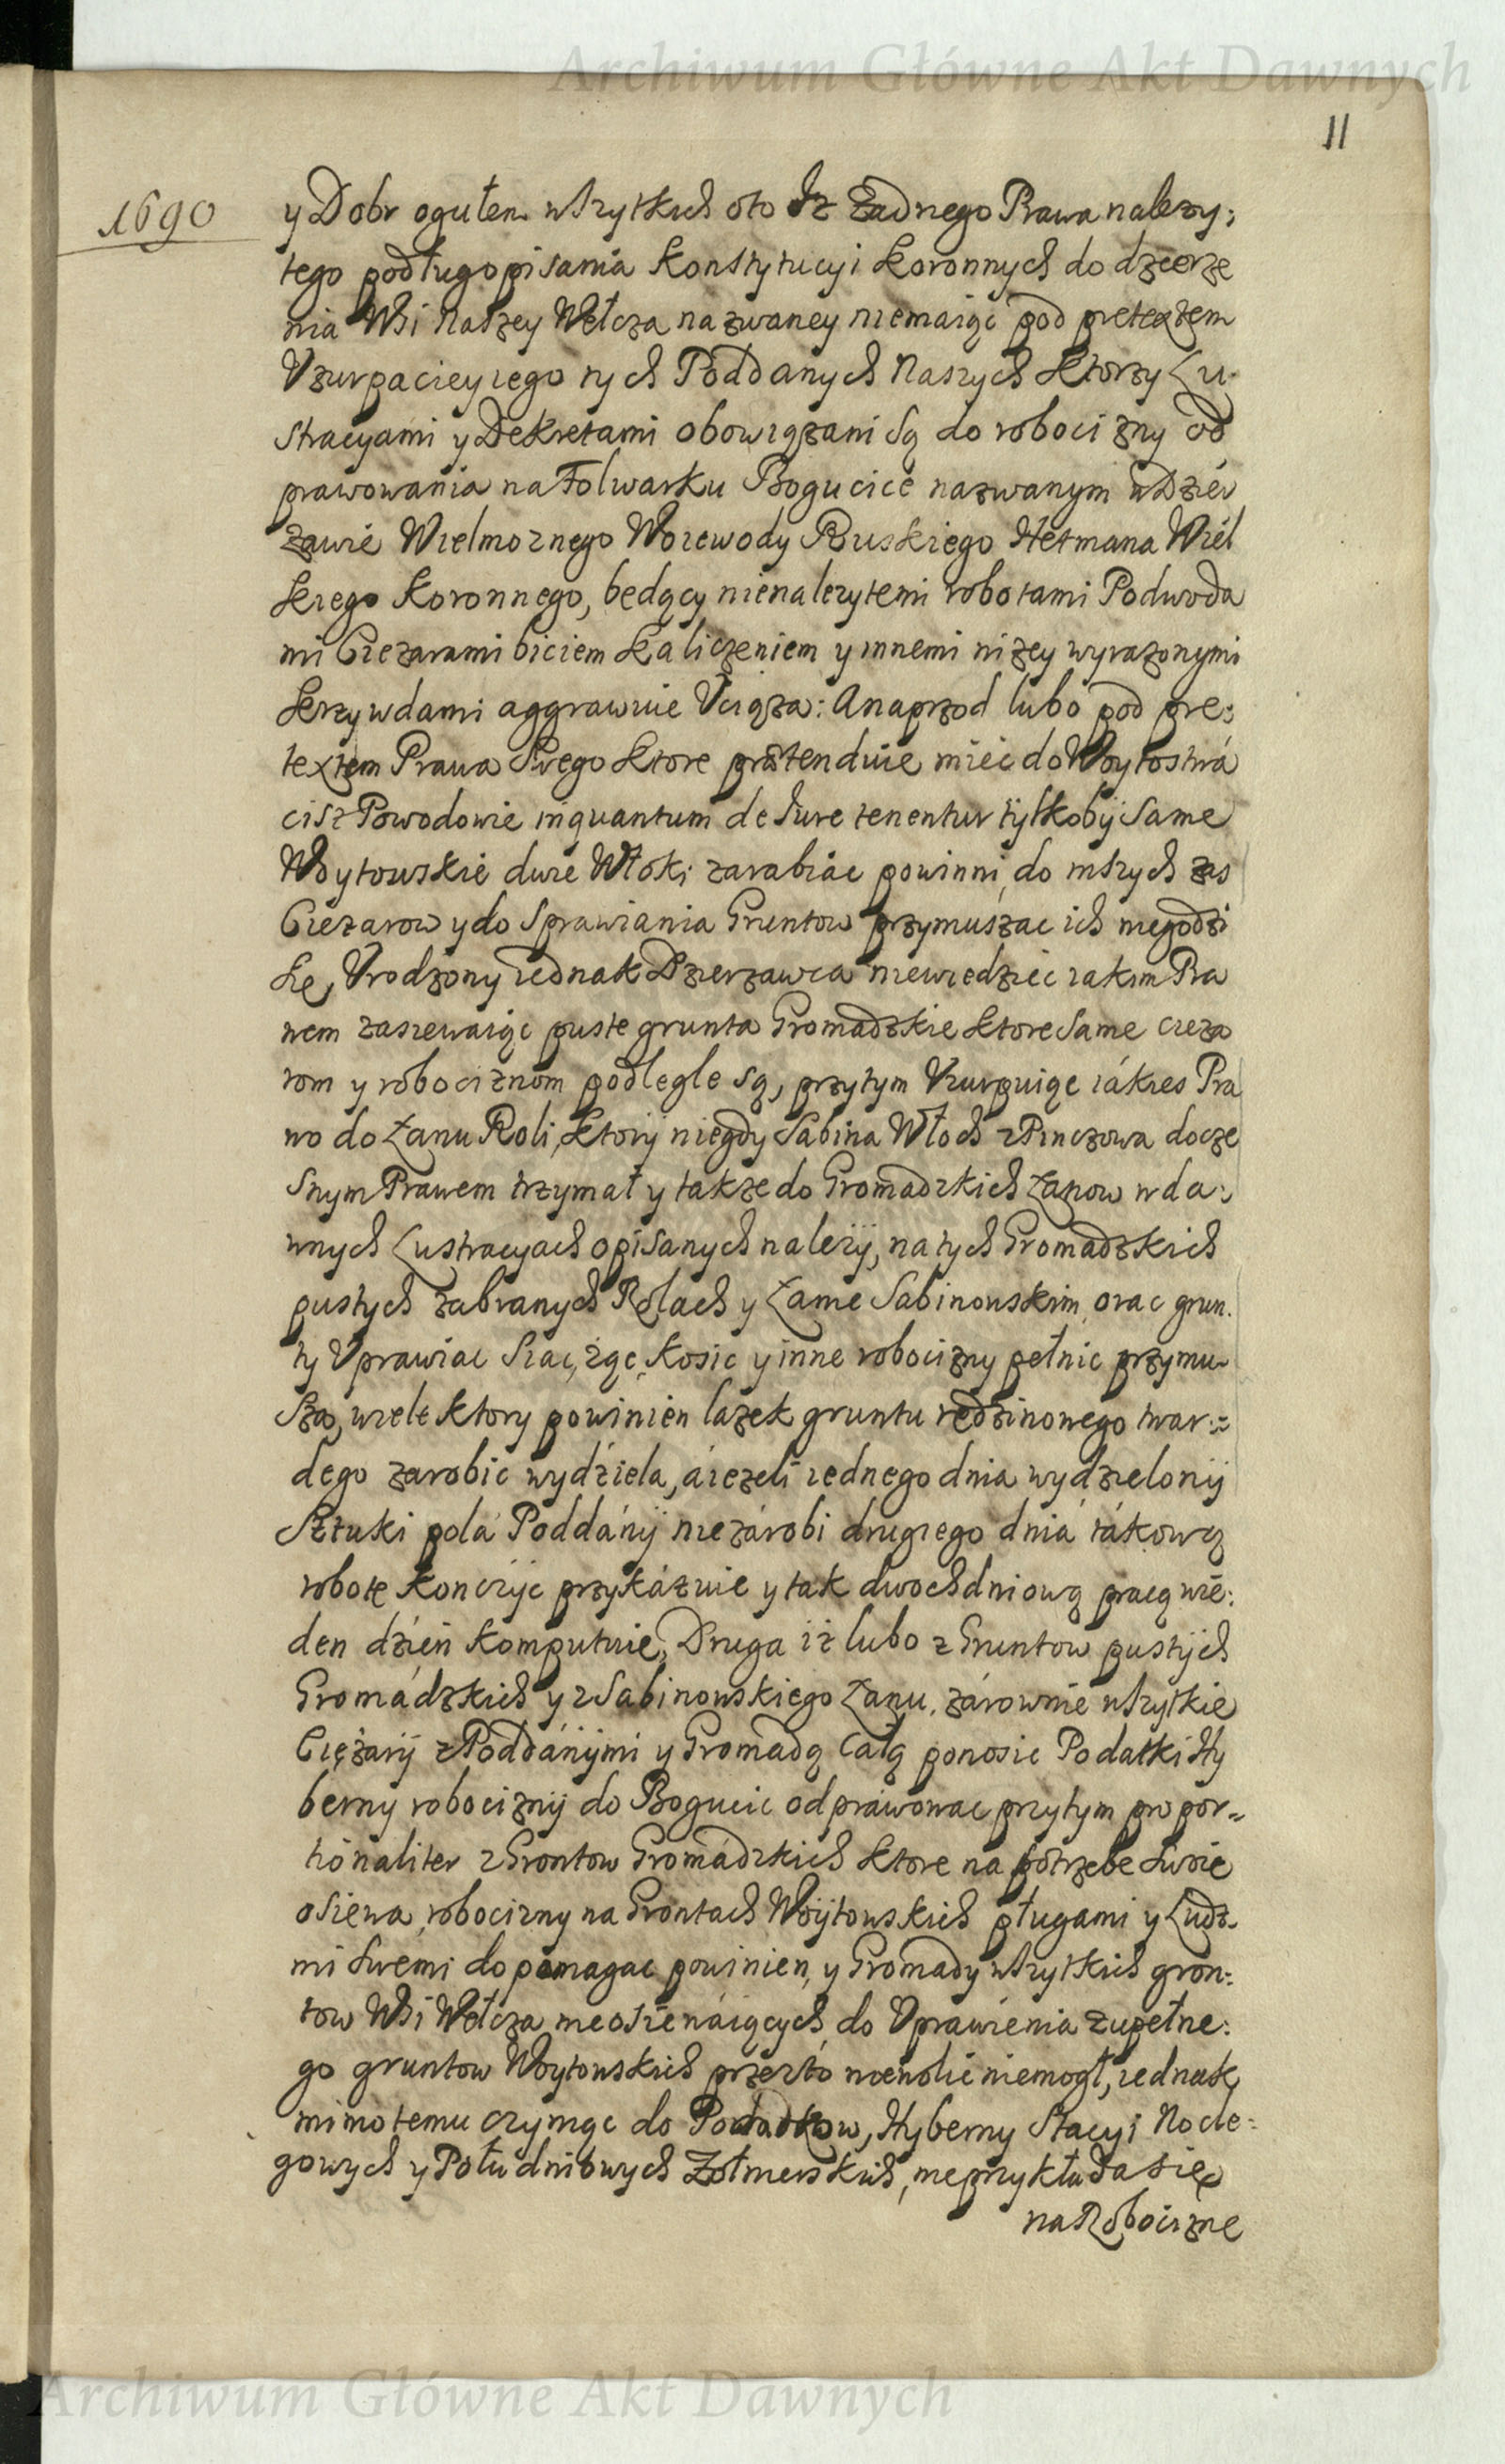 Archiwum Główne Akt Dawnych
11
1690
y Dobr ogułem wszytkich oto Iż Zadnego Prawa nalezy:
tego podług opisania Konstytucyi Koronnych do dzierze
nia Wsi Naszey Wełcza nazwaney niemaiąc pod pretextem
Vzurpacieyiego tych Poddanych Naszych ktorzy Lu-
stracyami y Dekretami obowiązani są do robocizny od
prawowania na Folwarku Bogucice nazwanym w Dzier
zawie Wielmoznego Woiewody Ruskiego Hetmana Wiel
kiego Koronnego, będący nienalezytemi robotami Podwoda
mi Ciezarami biciem kaliczeniem y innemi nizey wyrazonymi
krzywdami aggrawuie Uciąza: Anaprzod lubo pod pre:
textem Prawa Swego ktore prætenduie miec do Woytostwa
cisz Powodowie inquantum de Iure tenentur tylko by same
Woytowskie dwie Włoki zarabiac powinni, do inszych zas
Ciezarow y do Sprawiania Gruntow przymuszac ich niegodzi
się, Vrodzony iednak Dzierzawca niewiedziec iakim Pra
wem zasiewaiąc puste grunta Gromadzkie ktore same cieza
rom y robociznom podległe są, przytym Vzurpuiąc iákies Pra
wo do Łanu Roli, ktory niegdy Sabina Włoch z Pinczowa docze
snym Prawem trzymał y takze do Gromadzkich Łanow w da:
wnych Lustracyach opisanych nalezy, na tych Gromadzkich
pustych zabranych Rolach y Łanie Sabinowskim orac grun.
ty Vprawiac Siac, żąc, Kosic y inne robocizny pełnic przymu-
sza, wiele ktory powinien lazek gruntu rędzinowego twar:
dego zarobic wydziela, á iezeli iednego dnia wydzielony
Sztuki pola Poddány niezárobi drugiego dnia tákową
robotę Konczyc przykázuie y tak dwoch dniową pracą wie:
den dzień Komputuie, Druga iż lubo z Gruntow pustych
Gromádzkich y z Sabinowskiego Łanu, zárownie wszytkie
Ciężary z Poddánymi y Gromadą Całą ponosic Podatki Hy
berny robocizny do Bogucic odpráwowac przytym propor-
tionaliter z Grontow Gromádzkich ktore na potrzebe swoie
osiewa, robocizny na Grontach Woytowskich pługami y Ludz-
mi swemi dopomagac powinien, y Gromady wszytkich gron:
tow Wsi Wełcza nieosiewáiących, do Vprawienia zupełne:
go gruntow Woytowskich przezto niewolic niemogł, iednak
mimo temu czyniąc do Podadkow, Hyberny Stacyi Nocle:
gowych y Południowych Zołnierskich, nieprzykłada się
na Robociznę
Archiwum Główne Akt Dawnych